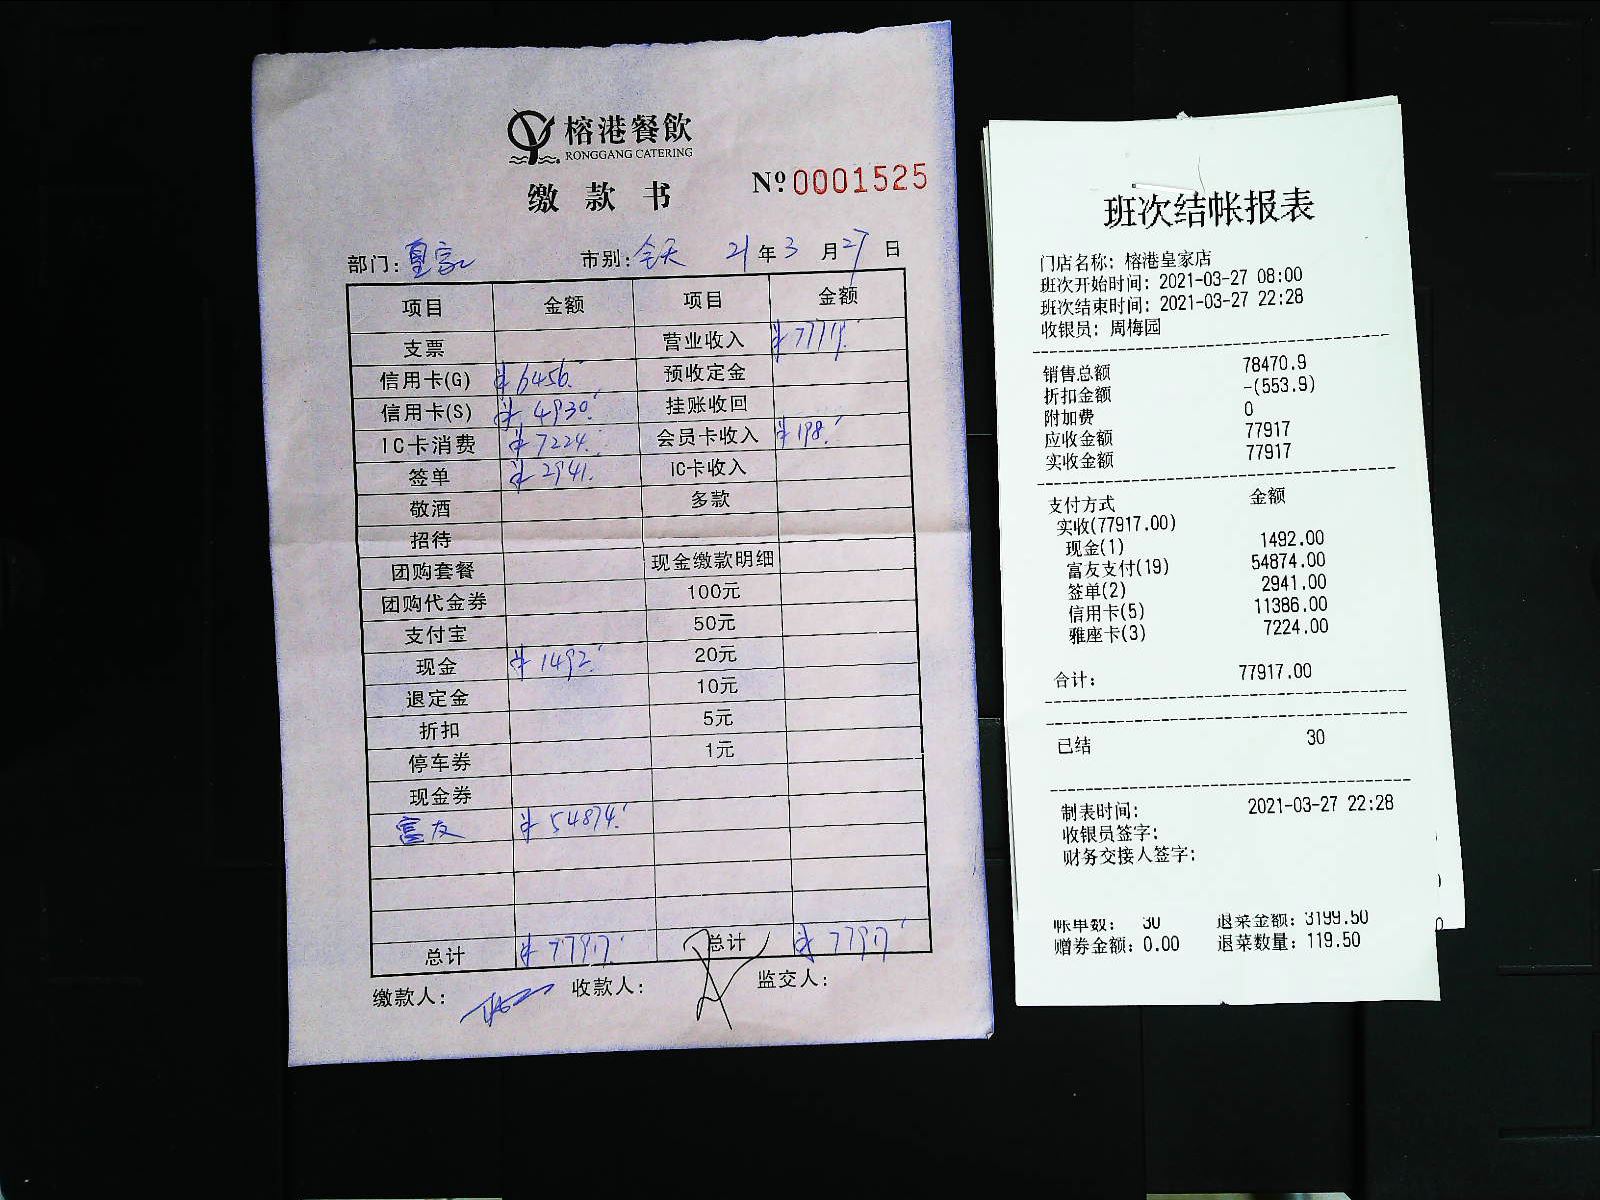 榕港餐飲
RONGGANG CATERING
缴款书 № 0001525
部门: 皇家 市别: 全天 21年3月27日
项目 金额 项目 金额
支票 营业收入 ¥77719.
信用卡(G) ¥6456. 预收定金
信用卡(S) ¥4930. 挂账收回
IC卡消费 ¥7224. 会员卡收入 ¥198.
签单 ¥2941. IC卡收入
敬酒 多款
招待
团购套餐 现金缴款明细
团购代金券 100元
支付宝 50元
现金 ¥1492. 20元
退定金 10元
折扣 5元
停车券 1元
现金券
富友 ¥54874.
总计 ¥77917. 总计 ¥77917
缴款人: 收款人: 监交人:
班次结帐报表
门店名称: 榕港皇家店
班次开始时间: 2021-03-27 08:00
班次结束时间: 2021-03-27 22:28
收银员: 周梅园
销售总额 78470.9
折扣金额 -(553.9)
附加费 0
应收金额 77917
实收金额 77917
支付方式 金额
实收(77917.00)
现金(1) 1492.00
富友支付(19) 54874.00
签单(2) 2941.00
信用卡(5) 11386.00
雅座卡(3) 7224.00
合计: 77917.00
已结 30
制表时间: 2021-03-27 22:28
收银员签字:
财务交接人签字:
帐单数: 30 退菜金额: 3199.50
赠券金额: 0.00 退菜数量: 119.50